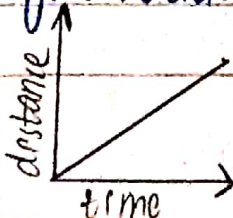 distance
time